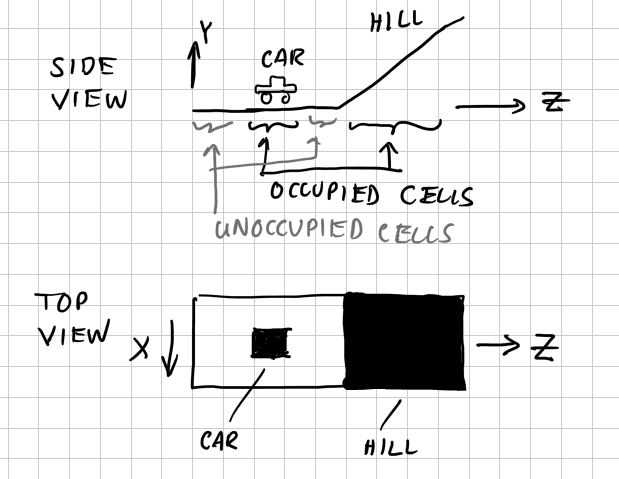 HILL
Y
CAR
SIDE
VIEW
Z
OCCUPIED CELLS
UNOCCUPIED CELLS
TOP
VIEW
X
Z
CAR
HILL